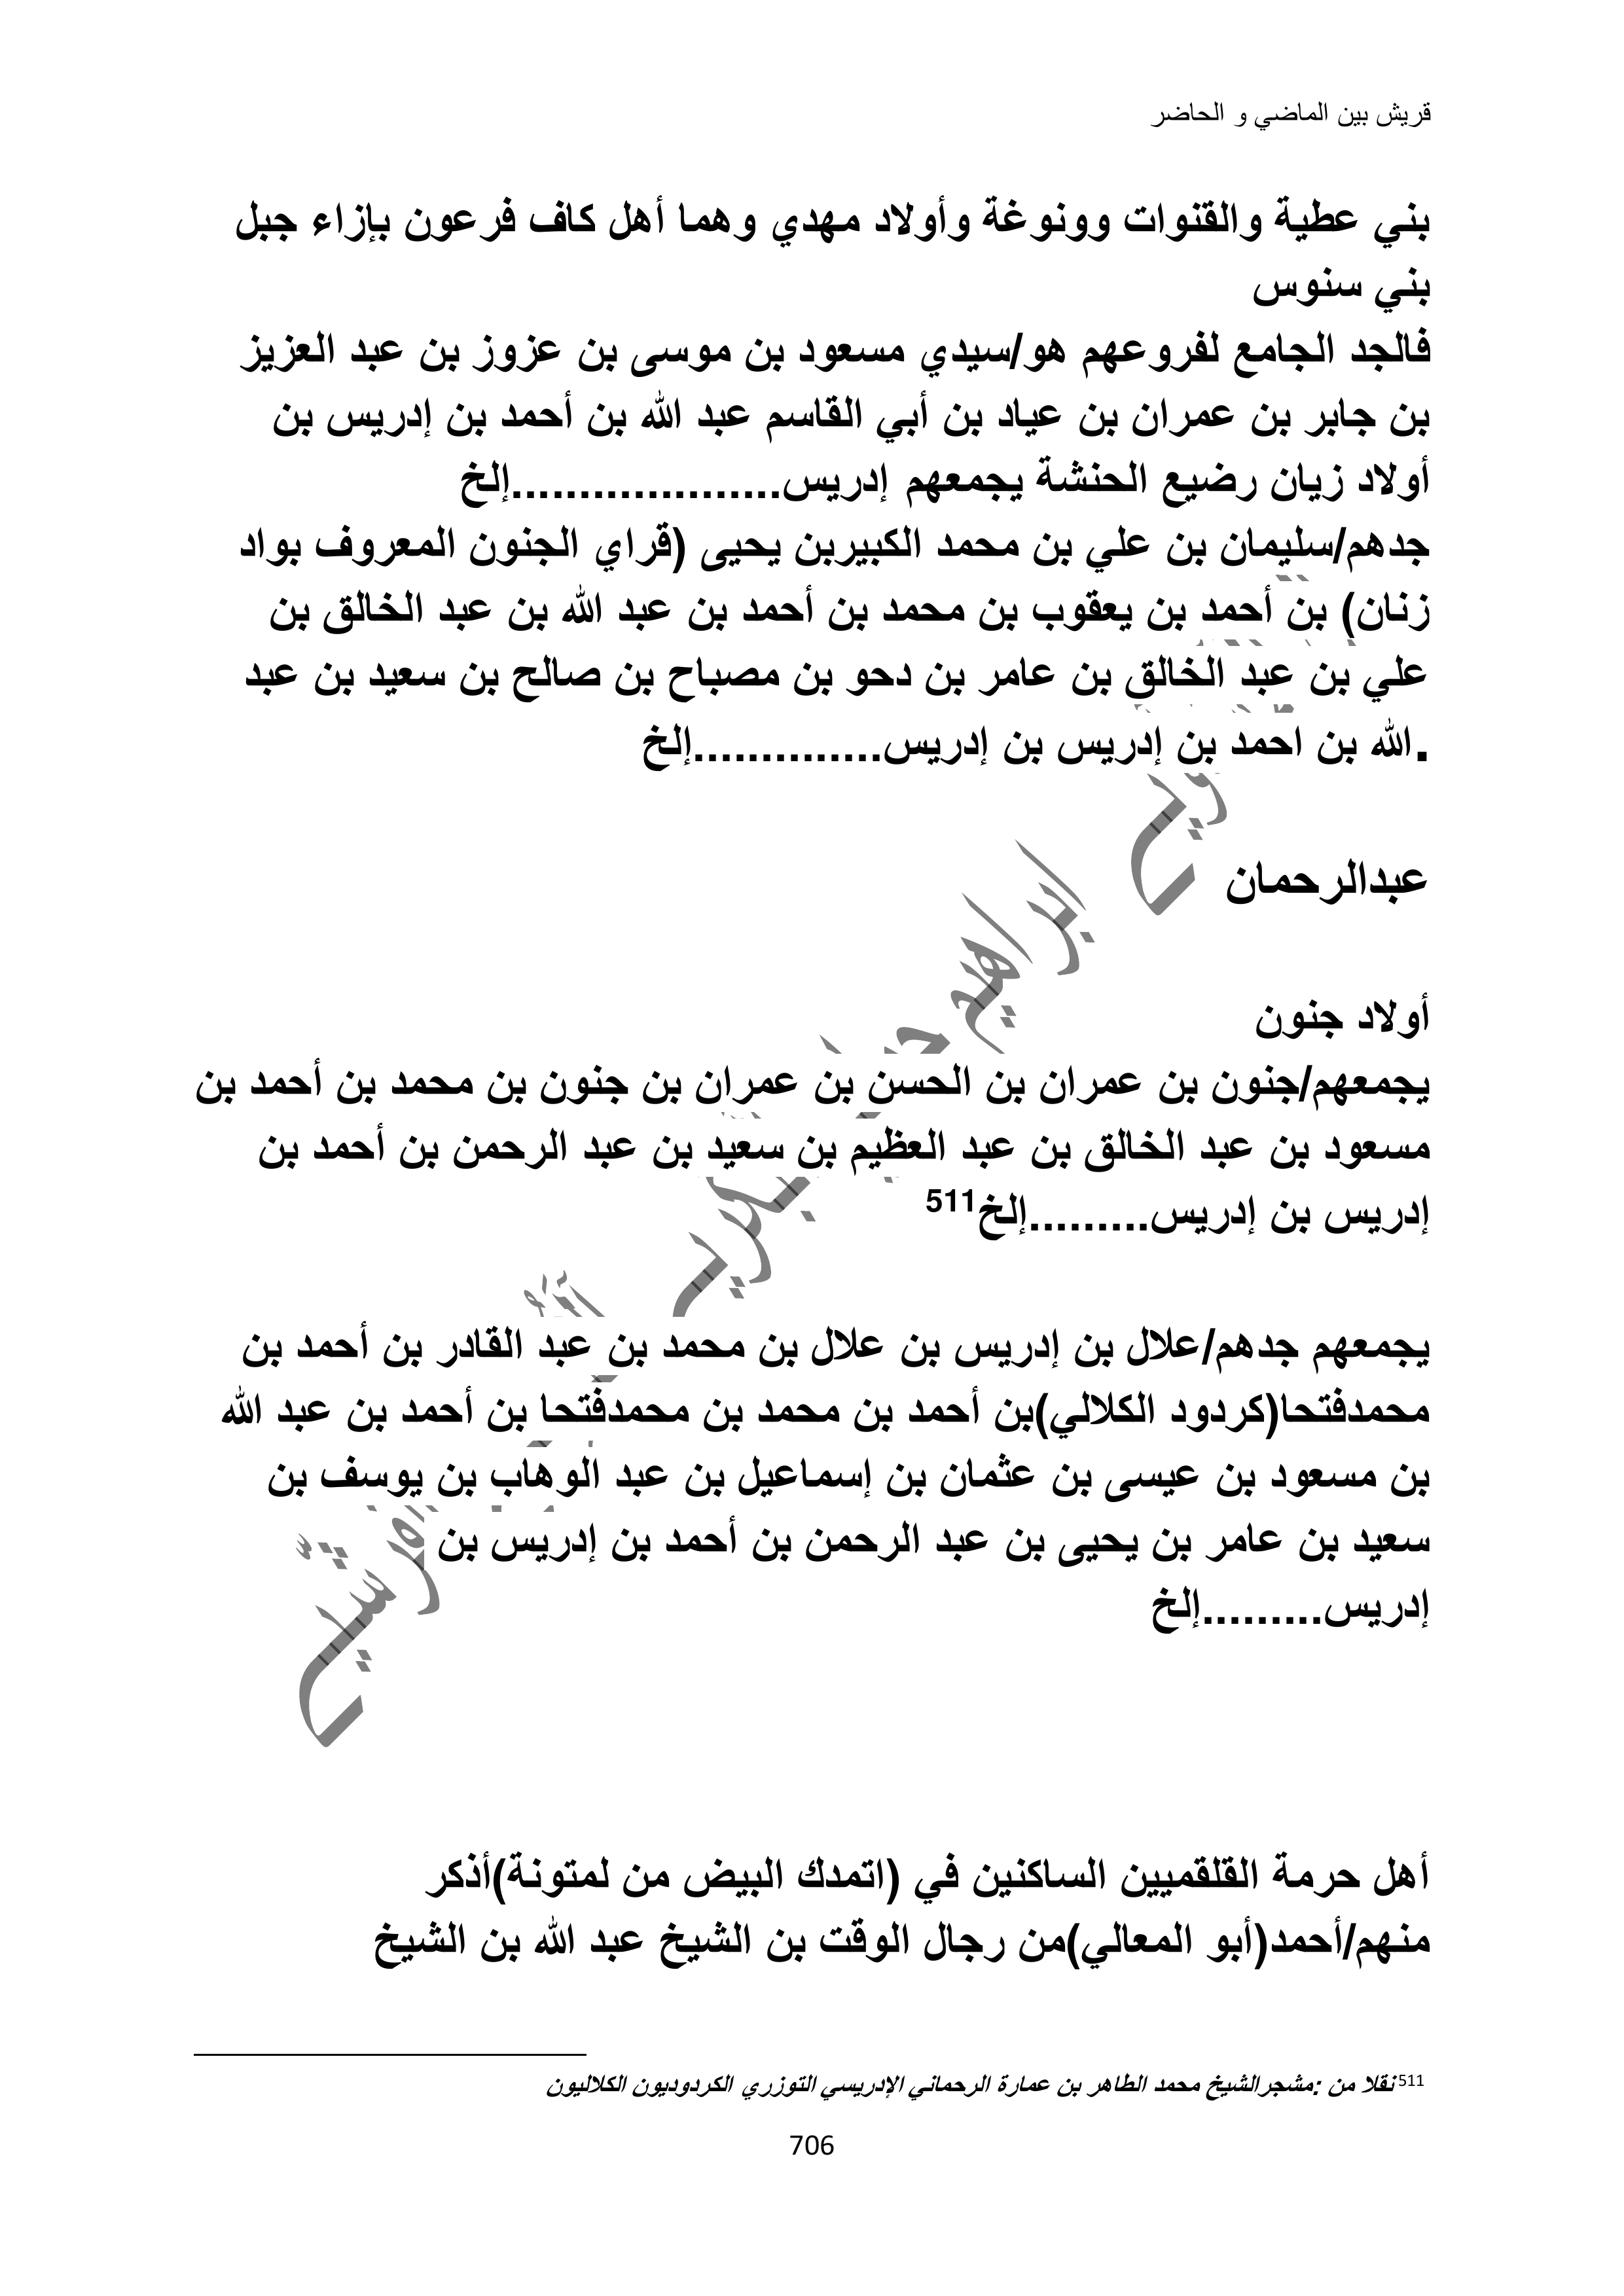 قريش بين الماضي و الحاضر
بني عطية والقنوات وونوغة وأولاد مهدي وهما أهل كاف فرعون بإزاء جبل
بني سنوس
فالجد الجامع لفروعهم هو/سيدي مسعود بن موسى بن عزوز بن عبد العزيز
بن جابر بن عمران بن عياد بن أبي القاسم عبد الله بن أحمد بن إدريس بن
أولاد زيان رضيع الحنشة يجمعهم إدريس....................إلخ
جدهم/سليمان بن علي بن محمد الكبيربن يحيى (قراي الجنون المعروف بواد
زنان) بن أحمد بن يعقوب بن محمد بن أحمد بن عبد الله بن عبد الخالق بن
علي بن عبد الخالق بن عامر بن دحو بن مصباح بن صالح بن سعيد بن عبد
.الله بن احمد بن إدريس بن إدريس..............إلخ
عبدالرحمان
أولاد جنون
يجمعهم/جنون بن عمران بن الحسن بن عمران بن جنون بن محمد بن أحمد بن
مسعود بن عبد الخالق بن عبد العظيم بن سعيد بن عبد الرحمن بن أحمد بن
إدريس بن إدريس.........إلخ511
يجمعهم جدهم/علال بن إدريس بن علال بن محمد بن عبد القادر بن أحمد بن
محمدفتحا(كردود الكلالي)بن أحمد بن محمد بن محمدفتحا بن أحمد بن عبد الله
بن مسعود بن عيسى بن عثمان بن إسماعيل بن عبد الوهاب بن يوسف بن
سعيد بن عامر بن يحيى بن عبد الرحمن بن أحمد بن إدريس بن
إدريس.........إلخ
أهل حرمة القلقميين الساكنين في (اتمدك البيض من لمتونة)أذكر
منهم/أحمد(أبو المعالي)من رجال الوقت بن الشيخ عبد الله بن الشيخ
511 نقلا من :مشجرالشيخ محمد الطاهر بن عمارة الرحماني الإدريسي التوزري الكردوديون الكلاليون
706
ابراهيم